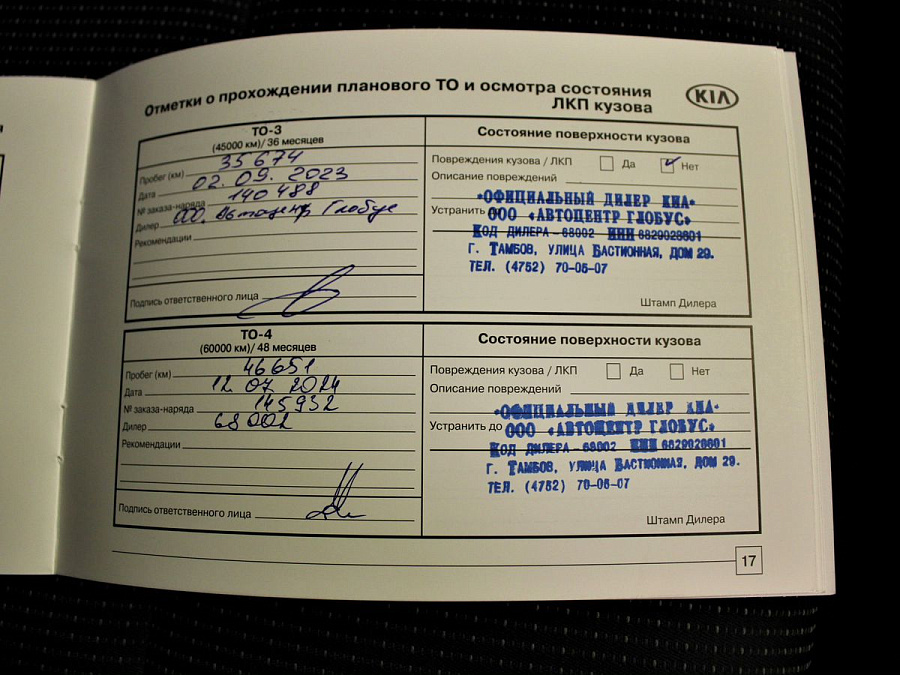 Отметки о прохождении планового ТО и осмотра состояния
ЛКП кузова
KIA
ТО-3
(45000 км)/ 36 месяцев
Пробег (км) 35674
Дата 02.09.2023
№ заказа-наряда 140488
Дилер ООО. Автоцентр Глобус
Рекомендации
Подпись ответственного лица
Состояние поверхности кузова
Повреждения кузова / ЛКП Да Нет
Описание повреждений
Устранить
•ОФИЦИАЛЬНЫЙ ДИЛЕР КИА•
ООО «АВТОЦЕНТР ГЛОБУС»
КОД ДИЛЕРА – 68002 ИНН 6829028601
Г. ТАМБОВ, УЛИЦА БАСТИОННАЯ, ДОМ 29.
ТЕЛ. (4752) 70-05-07
Штамп Дилера
ТО-4
(60000 км)/ 48 месяцев
Пробег (км) 46651
Дата 12 07 2024
№ заказа-наряда 145932
Дилер 68002
Рекомендации
Подпись ответственного лица
Состояние поверхности кузова
Повреждения кузова / ЛКП Да Нет
Описание повреждений
Устранить до
•ОФИЦИАЛЬНЫЙ ДИЛЕР КИА•
ООО «АВТОЦЕНТР ГЛОБУС»
КОД ДИЛЕРА – 68002 ИНН 6829028601
Г. ТАМБОВ, УЛИЦА БАСТИОННАЯ, ДОМ 29.
ТЕЛ. (4752) 70-05-07
Штамп Дилера
17